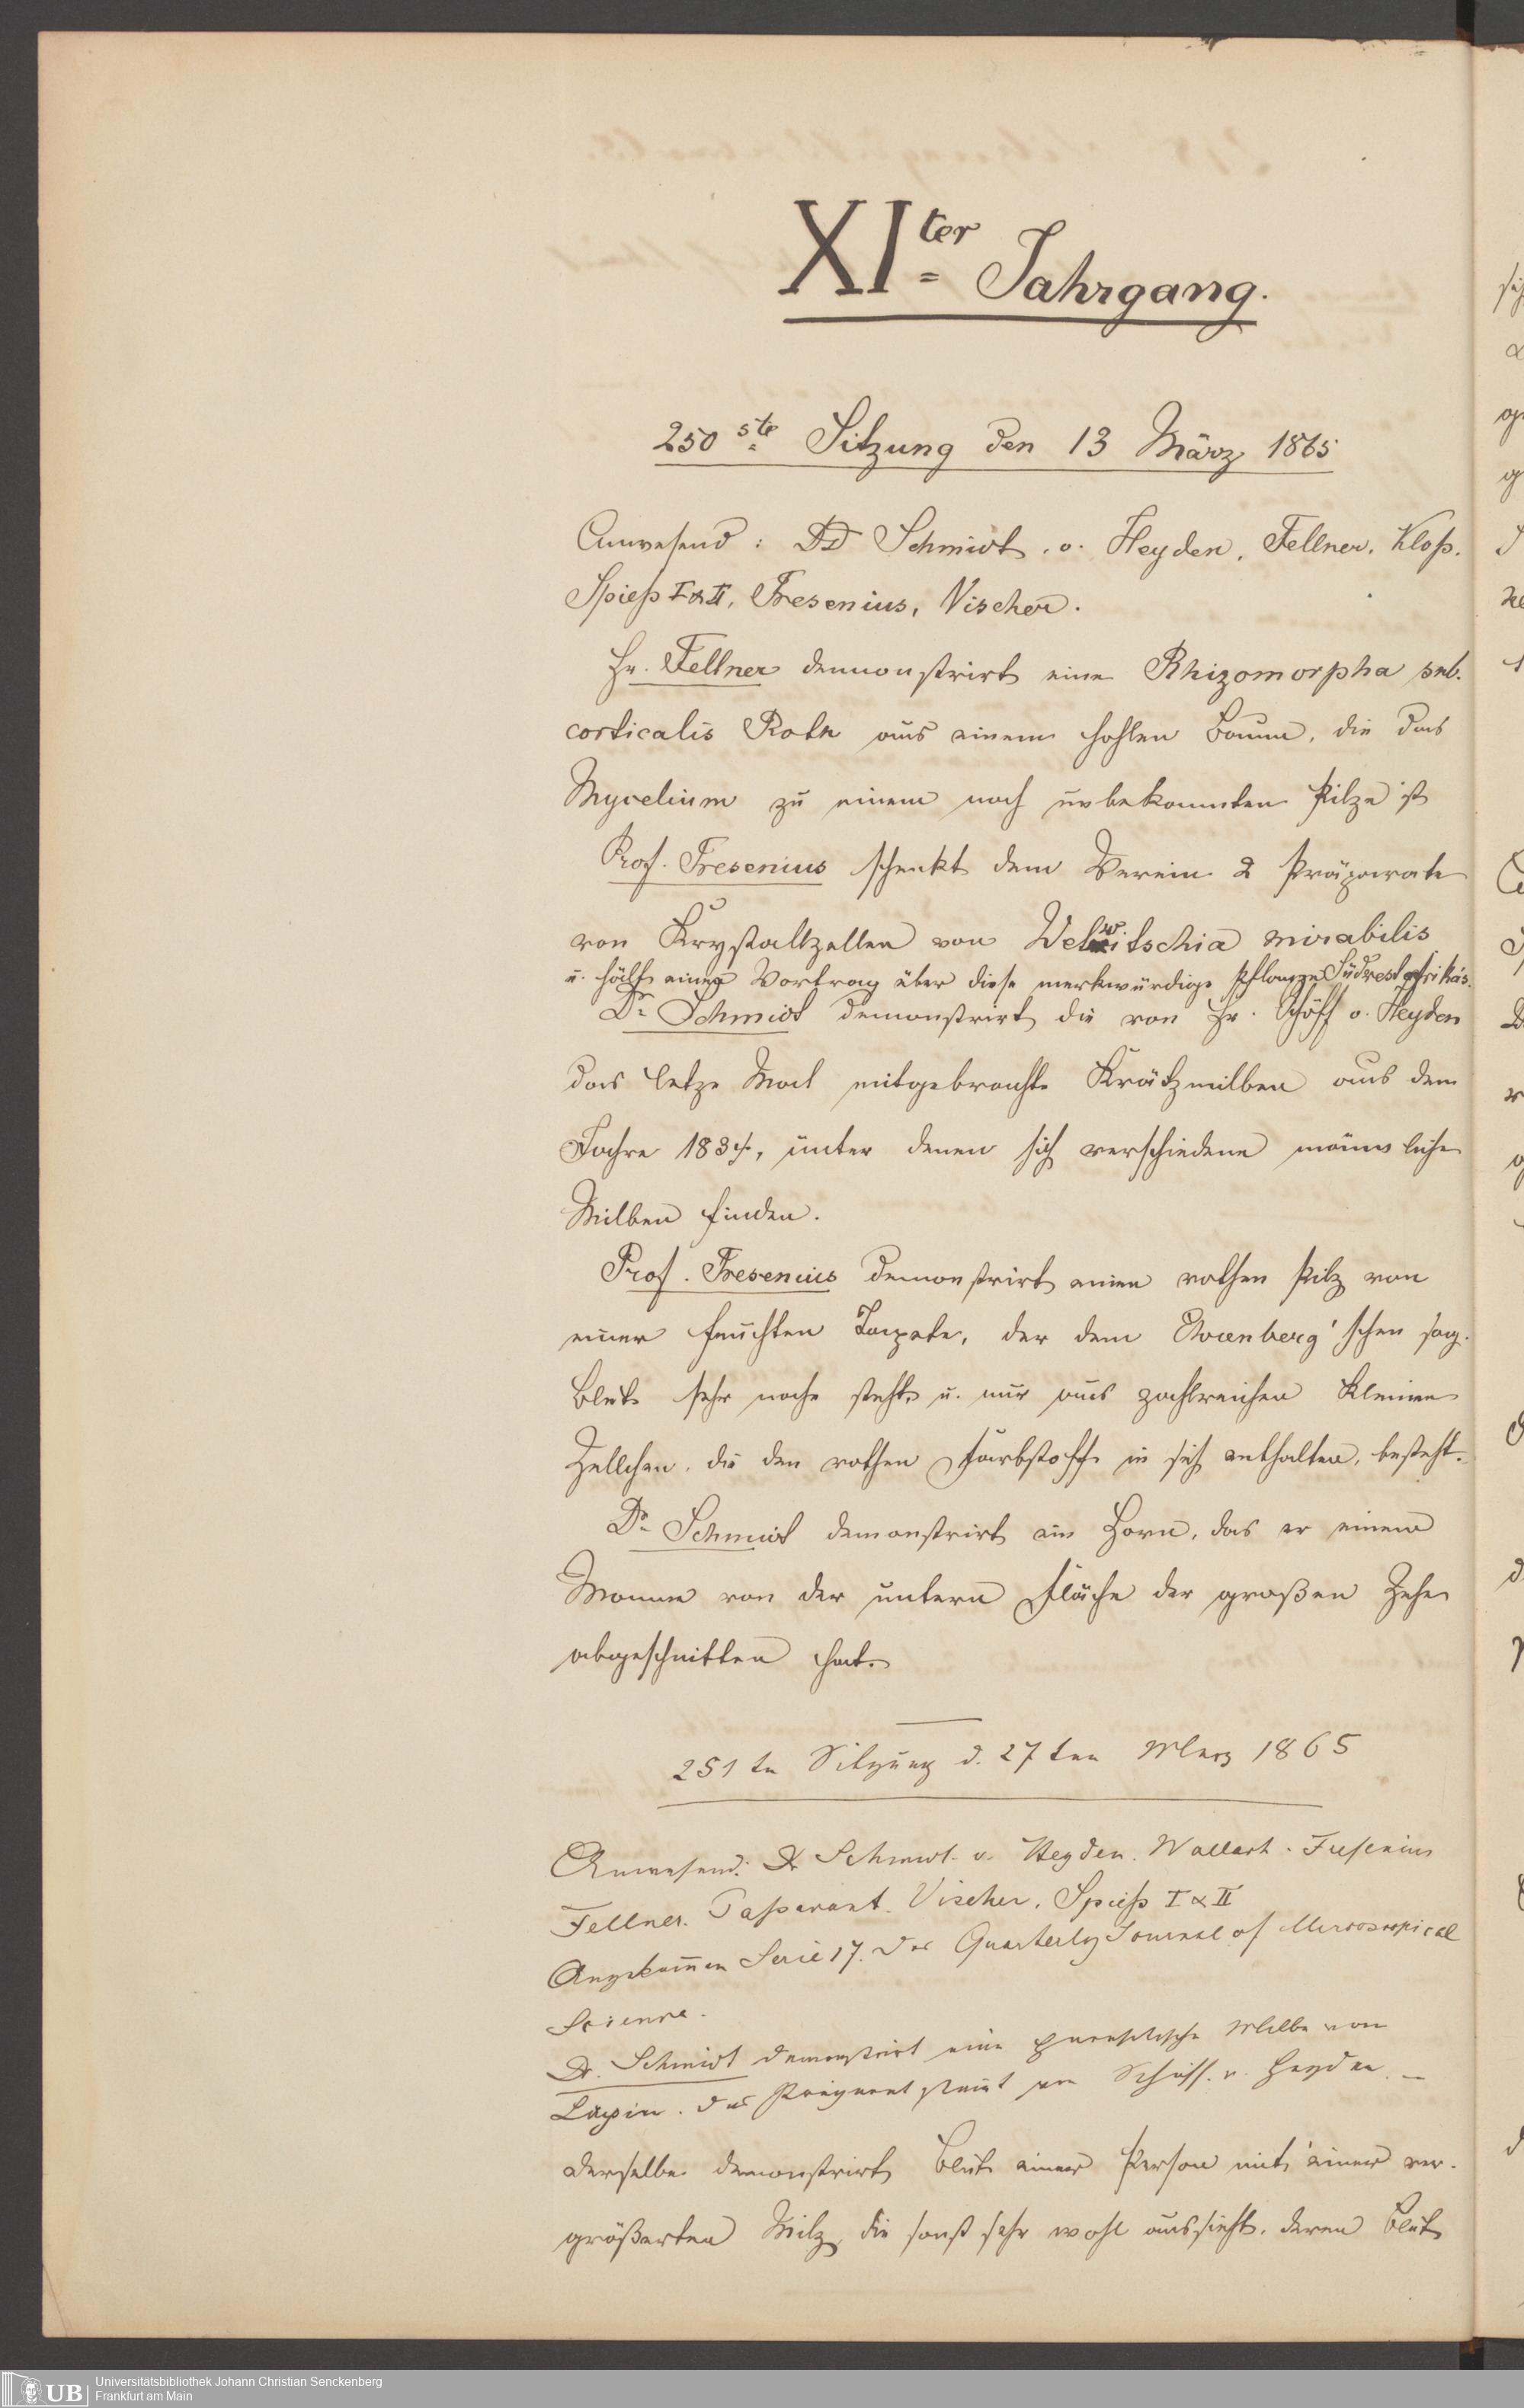 XIter Jahrgang.
250ste Sitzung den 13 März 1865
Anwesend: DD Schmidt, v. Heyden, Fellner, Kloß,
Spieß I & II, Fresenius, Vischer.
Hr. Fellner demonstrirt eine Rhizomorpha sub-
corticalis Roth aus einem hohlen Baum, die das
Mycelium zu einem noch unbekannten Pilze ist
Prof. Fresenius schenkt dem Verein 2 Präparate
von Krystallzellen von Welwitschia mirabilis
u. hält einen Vortrag über diese merkwürdige Pflanze Südwestafrika's.
Dr Schmidt demonstrirt die von Hr. Schöff v. Heyden
das letze Mal mitgebrachte Krätzmilben aus dem
Jahre 1834, unter denen sich verschiedene männliche
Milben finden.
Prof. Fresenius demonstrirt einen rothen Pilz von
einer feuchten Tapete, der dem Ehrenberg'schen sog.
Blute sehr nahe steht u. nur aus zahlreichen kleinen
Zellchen, die den rothen Farbstoff in sich enthalten, besteht.
Dr Schmidt demonstrirt ein Horn, das er einem
Manne von der untern Fläche der großen Zehe
abgeschnitten hat.
251te Sitzung d. 27ten Maerz 1865
Anwesend: Dr Schmidt. v. Heyden. Wallach. Fresenius
Fellner. Passavant. Vischer. Spieß I & II
Angekommen Serie 17. des Quarterly Journal of Microscopical
Science.
Dr. Schmidt demonstrirt eine parasitische Milbe von
Lapin. das Präparat stammt von Schöff. v. Heyden. –
Derselbe demonstrirt Blut einer Person mit einer ver-
größerten Milz, die sonst sehr wohl aussieht, deren Blut
Universitätsbibliothek Johann Christian Senckenberg
UB Frankfurt am Main